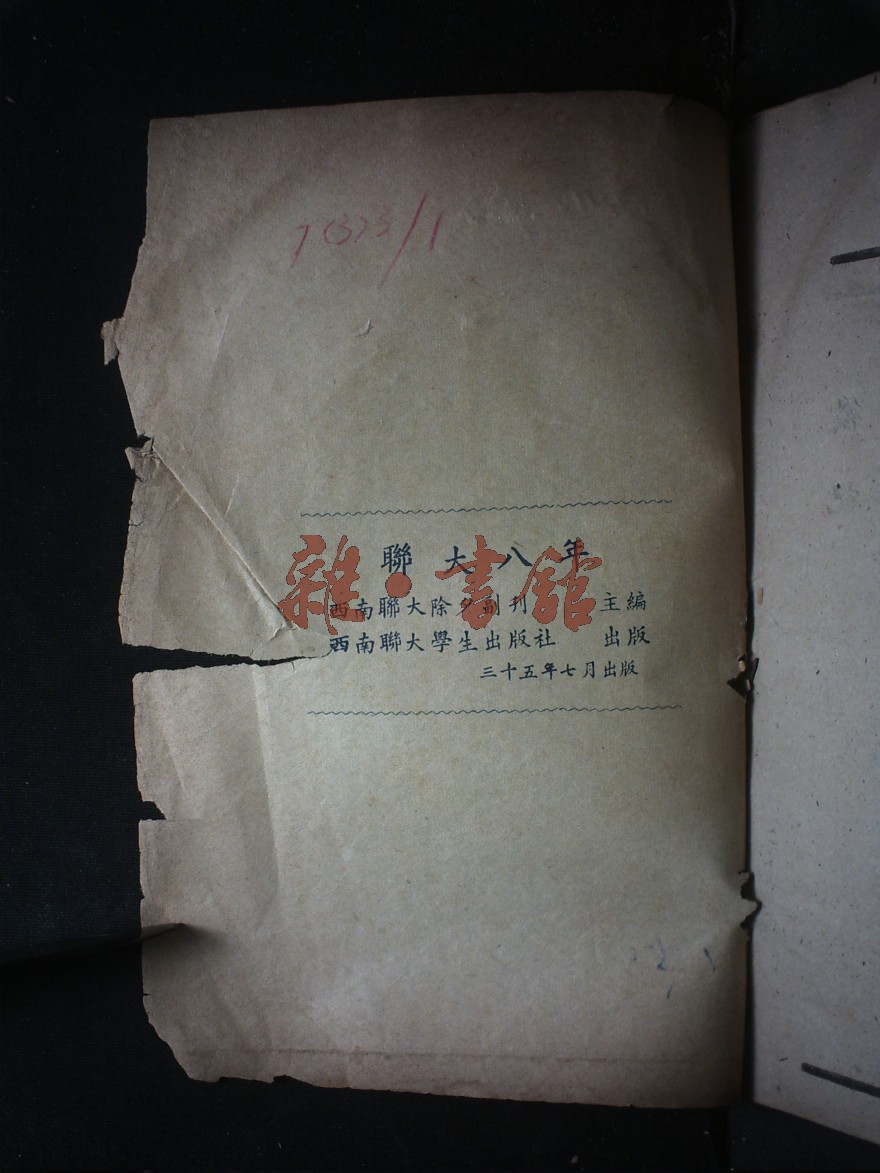 7(3)3/1
聯大八年
西南聯大除夕副刊 主編
西南聯大學生出版社 出版
三十五年七月出版
雜·書館